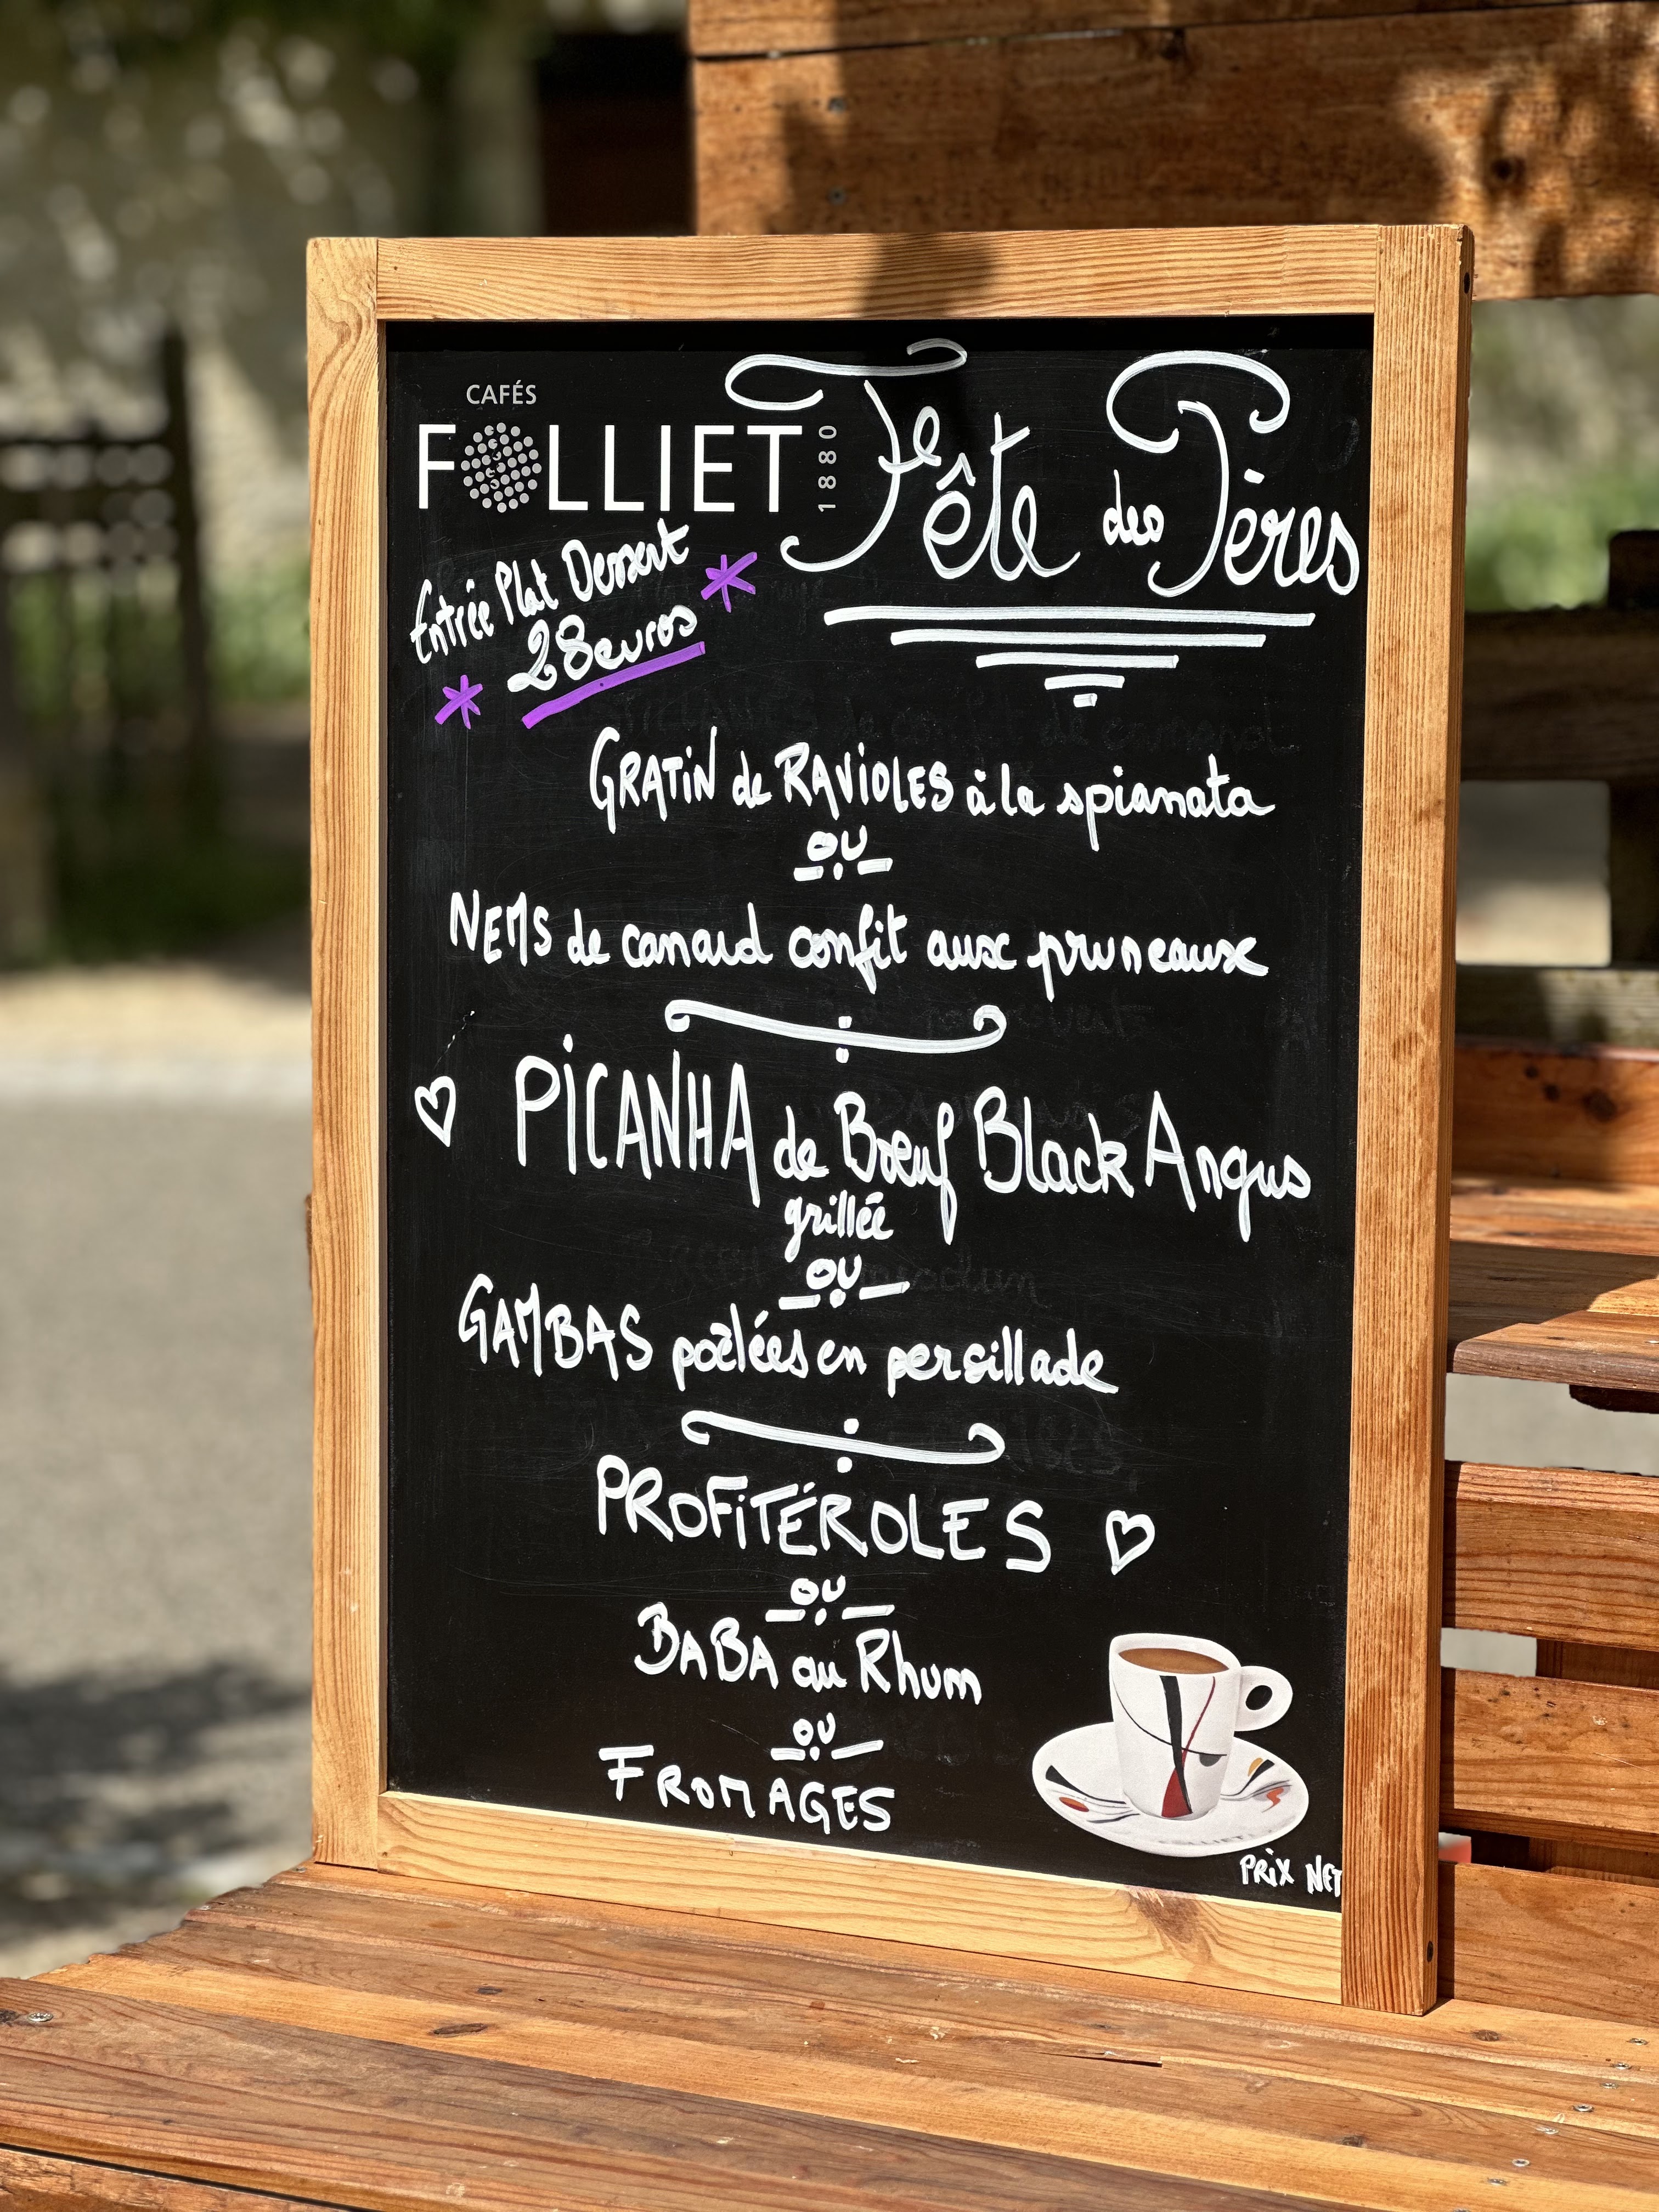 CAFÉS
FOLLIET 1880
Fête des Pères
Entrée Plat Dessert
28 euros
GRATIN de RAVIOLES à la spianata
ou
NEMS de canard confit aux pruneaux
PICANHA de Bœuf Black Angus
grillée
ou
GAMBAS poêlées en persillade
PROFITÉROLES
ou
BABA au Rhum
ou
FROMAGES
FOLLIET
PRIX NET